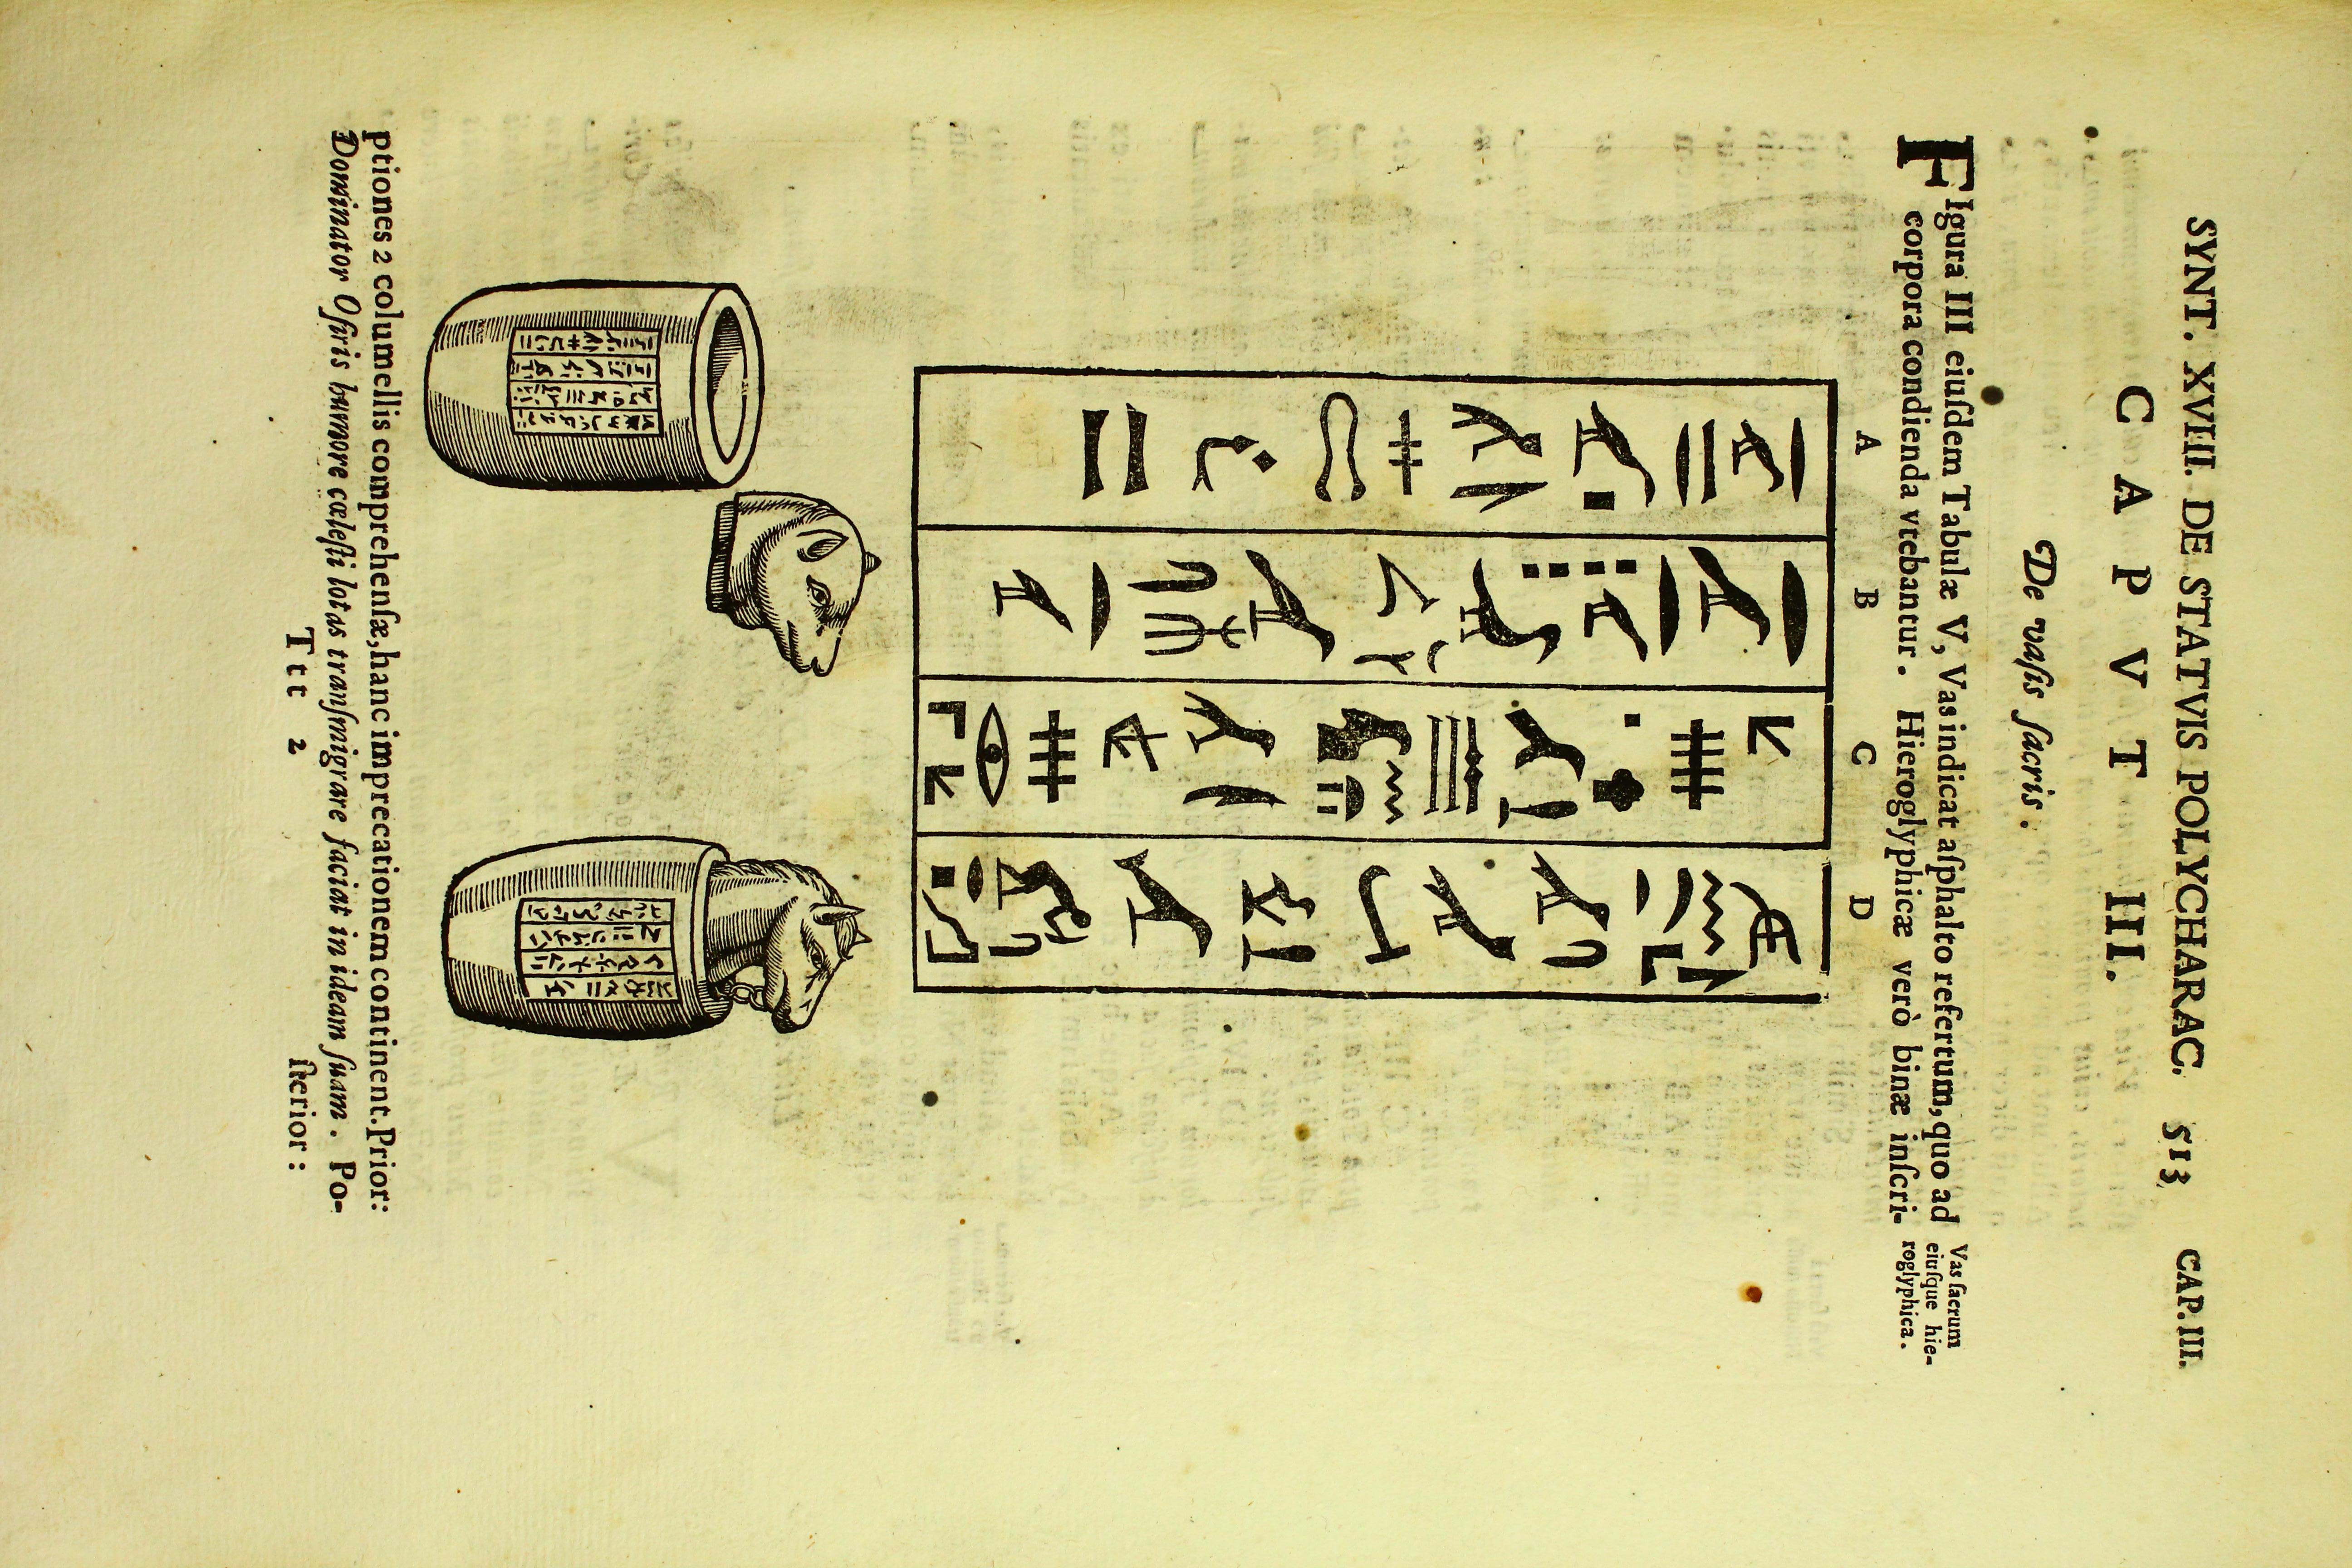 SYNT. XVIII. DE STATVIS POLYCHARAC. 513 CAP. III.
CAPVT III.
De vaſis ſacris.
FIgura III eiuſdem Tabulæ V, Vas indicat aſphalto refertum, quo ad
corpora condienda vtebantur. Hieroglyphicæ verò binæ inſcri-
Vas ſacrum
eiuſque hie-
roglyphica.
A B C D
ptiones 2 columellis comprehenſæ, hanc imprecationem continent. Prior:
Dominator Oſiris humore cæleſti lotas tranſmigrare faciat in ideam ſuam. Po-
Ttt 2 ſterior: